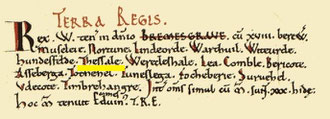 TERRA REGIS.
Rex .W. ten̄ in dn̄io BREMESGRAVE cū .XVIII. berew̄.
Museleie. Nortune. Lindeorde. Warthuil. Witeurde.
hundesfelde. Thessale. Weredeshale. Lea. Comble. Bericote.
Asseberga. Tothehel. Tuneslega. focheberie. Suruehel.
Udecote. Timbrehangre. Int̄ om̄s simul cū m̄. suꝶ .XXX. hidę.
Hoc m̄ tenuit Eduin T.R.E.